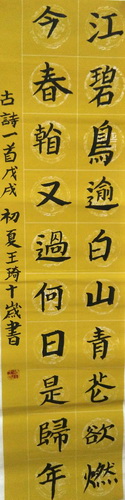 江碧鳥逾白山青花欲燃
今春看又過何日是歸年
古詩一首戊戌初夏王琦十歲書